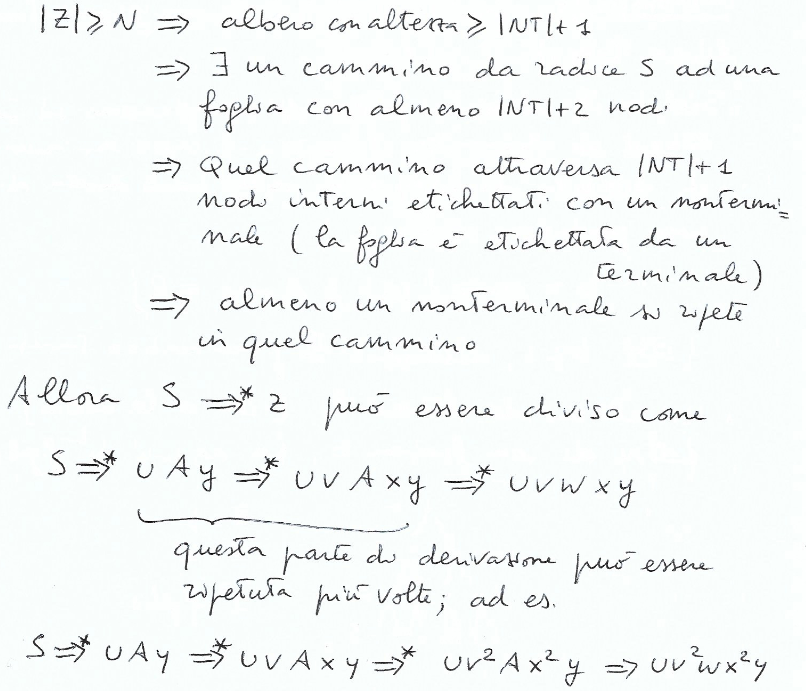 |Z| ≥ N ⇒ albero con altezza ≥ |NT|+1
⇒ ∃ un cammino da radice S ad una
foglia con almeno |NT|+2 nodi
⇒ Quel cammino attraversa |NT|+1
nodi interni etichettati con un nontermi=
nale (la foglia è etichettata da un
terminale)
⇒ almeno un nonterminale si ripete
in quel cammino
Allora S ⇒* z può essere diviso come
S ⇒* uAy ⇒* uvAxy ⇒* uvwxy
questa parte di derivazione può essere
ripetuta più volte; ad es.
S ⇒* uAy ⇒* uvAxy ⇒* uv²Ax²y ⇒ uv²wx²y